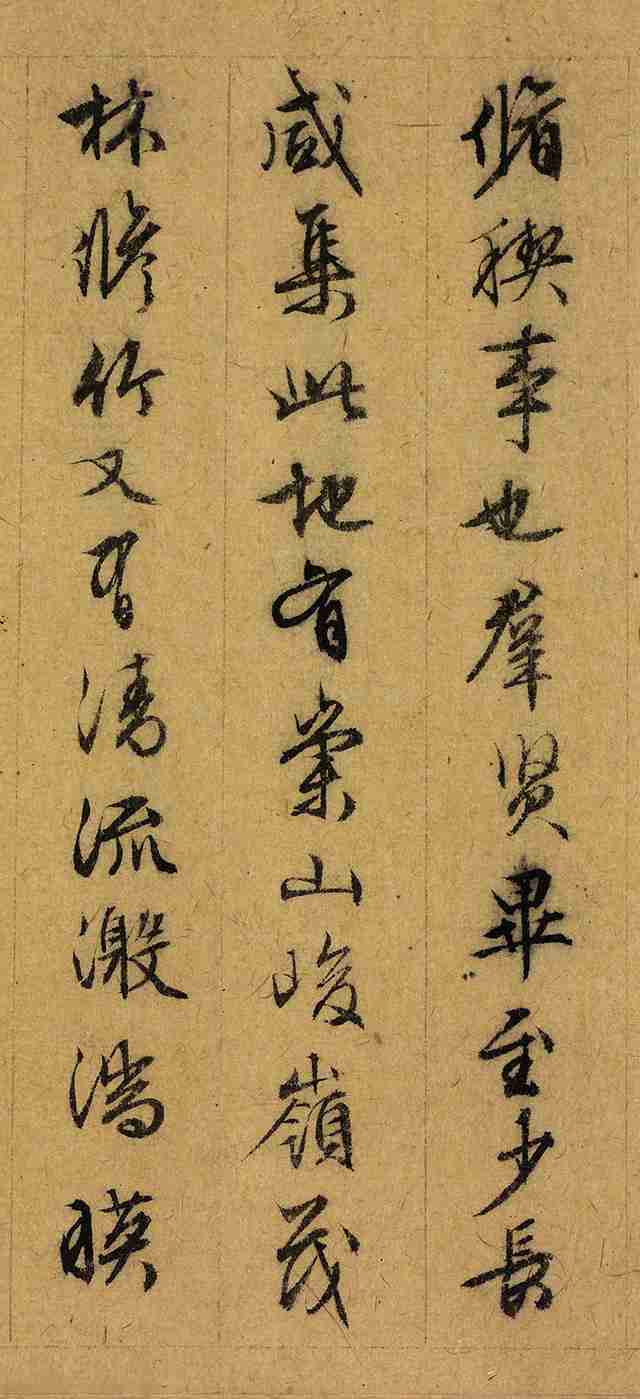 脩稧事也羣賢畢至少長
咸集此地有崇山峻嶺茂
林脩竹又有清流激湍暎